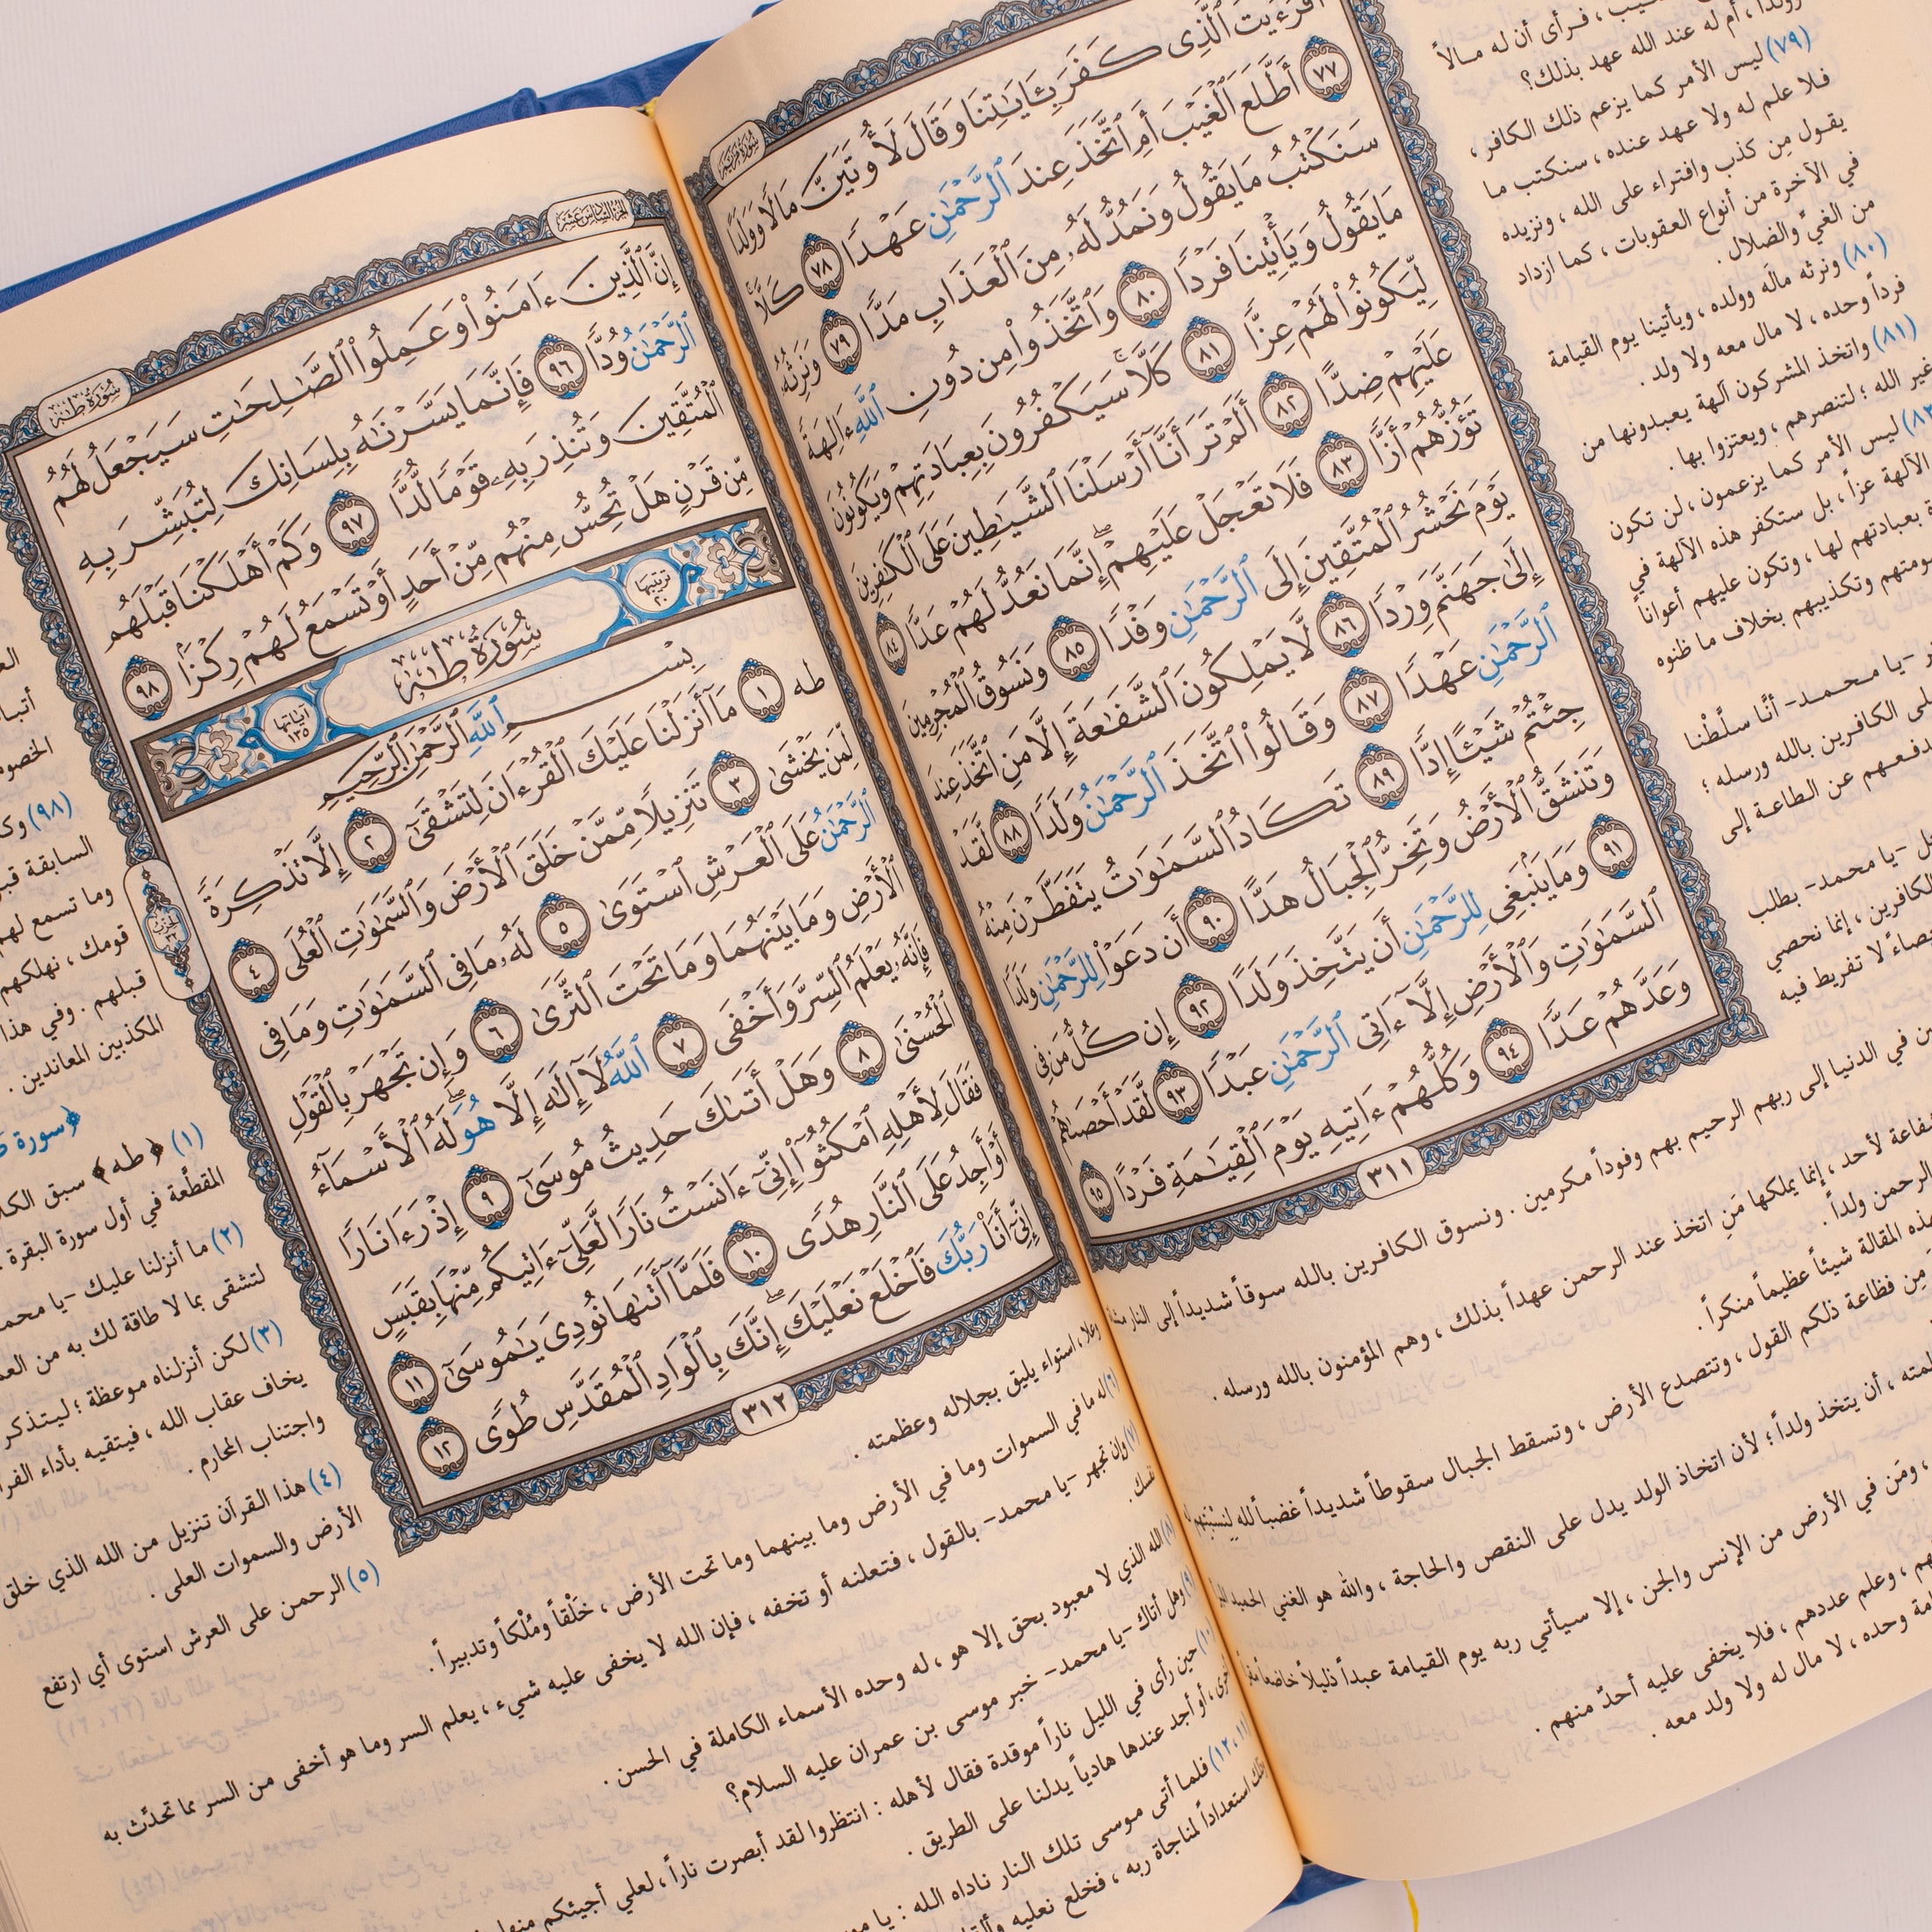 سُورَةُ مَرْيَم
أَفَرَءَيْتَ ٱلَّذِى كَفَرَ بِـَٔايَـٰتِنَا وَقَالَ لَأُوتَيَنَّ مَالًا وَوَلَدًا
٧٧ أَطَّلَعَ ٱلْغَيْبَ أَمِ ٱتَّخَذَ عِندَ ٱلرَّحْمَـٰنِ عَهْدًا ٧٨ كَلَّا
سَنَكْتُبُ مَا يَقُولُ وَنَمُدُّ لَهُۥ مِنَ ٱلْعَذَابِ مَدًّا ٧٩ وَنَرِثُهُۥ
مَا يَقُولُ وَيَأْتِينَا فَرْدًا ٨٠ وَٱتَّخَذُوا۟ مِن دُونِ ٱللَّهِ ءَالِهَةً
لِّيَكُونُوا۟ لَهُمْ عِزًّا ٨١ كَلَّا سَيَكْفُرُونَ بِعِبَادَتِهِمْ وَيَكُونُونَ
عَلَيْهِمْ ضِدًّا ٨٢ أَلَمْ تَرَ أَنَّآ أَرْسَلْنَا ٱلشَّيَـٰطِينَ عَلَى ٱلْكَـٰفِرِينَ
تَؤُزُّهُمْ أَزًّا ٨٣ فَلَا تَعْجَلْ عَلَيْهِمْ إِنَّمَا نَعُدُّ لَهُمْ عَدًّا ٨٤
يَوْمَ نَحْشُرُ ٱلْمُتَّقِينَ إِلَى ٱلرَّحْمَـٰنِ وَفْدًا ٨٥ وَنَسُوقُ ٱلْمُجْرِمِينَ
إِلَىٰ جَهَنَّمَ وِرْدًا ٨٦ لَّا يَمْلِكُونَ ٱلشَّفَـٰعَةَ إِلَّا مَنِ ٱتَّخَذَ عِندَ
ٱلرَّحْمَـٰنِ عَهْدًا ٨٧ وَقَالُوا۟ ٱتَّخَذَ ٱلرَّحْمَـٰنُ وَلَدًا ٨٨ لَّقَدْ
جِئْتُمْ شَيْـًٔا إِدًّا ٨٩ تَكَادُ ٱلسَّمَـٰوَٰتُ يَتَفَطَّرْنَ مِنْهُ
وَتَنشَقُّ ٱلْأَرْضُ وَتَخِرُّ ٱلْجِبَالُ هَدًّا ٩٠ أَن دَعَوْا۟ لِلرَّحْمَـٰنِ وَلَدًا
٩١ وَمَا يَنۢبَغِى لِلرَّحْمَـٰنِ أَن يَتَّخِذَ وَلَدًا ٩٢ إِن كُلُّ مَن فِى
ٱلسَّمَـٰوَٰتِ وَٱلْأَرْضِ إِلَّآ ءَاتِى ٱلرَّحْمَـٰنِ عَبْدًا ٩٣ لَّقَدْ أَحْصَىٰهُمْ
وَعَدَّهُمْ عَدًّا ٩٤ وَكُلُّهُمْ ءَاتِيهِ يَوْمَ ٱلْقِيَـٰمَةِ فَرْدًا ٩٥
٣١١
فرأى أن له مالاً
وولداً، أم له عند الله عهد بذلك؟
(٧٩) ليس الأمر كما يزعم ذلك الكافر،
فلا علم له ولا عهد عنده، سنكتب ما
يقول مِن كذب وافتراء على الله، ونزيده
في الآخرة من أنواع العقوبات، كما ازداد
من الغيّ والضلال.
(٨٠) ونرثه مالَه وولده، ويأتينا يوم القيامة
فرداً وحده، لا مال معه ولا ولد.
(٨١) واتخذ المشركون آلهة يعبدونها من
غير الله؛ لتنصرهم، ويعتزوا بها.
ليس الأمر كما يزعمون، لن تكون
الآلهة عزاً، بل ستكفر هذه الآلهة في
بعبادتهم لها، وتكون عليهم أعواناً
وتكذيبهم بخلاف ما ظنوه
-يا محمد- أنَّا سلَّطْنا
على الكافرين بالله ورسله؛
عن الطاعة إلى
-يا محمد- بطلب
الكافرين، إنما نحصي
لا تفريط فيه
في الدنيا إلى ربهم الرحيم بهم وفوداً مكرمين. ونسوق الكافرين بالله سوقاً شديداً إلى النار
لأحد، إنما يملكها مَنِ اتخذ عند الرحمن عهداً بذلك، وهم المؤمنون بالله ورسله.
الرحمن ولداً.
هذه المقالة شيئاً عظيماً منكراً.
مِن فظاعة ذلكم القول، وتتصدع الأرض، وتسقط الجبال سقوطاً شديداً غضباً لله
أن يتخذ ولداً؛ لأن اتخاذ الولد يدل على النقص والحاجة، والله هو الغني الحميد
ومَن في الأرض من الإنس والجن، إلا سيأتي ربه يوم القيامة عبداً ذليلاً خاضعاً
وعلم عددهم، فلا يخفى عليه أحدٌ منهم.
وحده، لا مال له ولا ولد معه.
الجزء السادس عشر
سُورَةُ طه
إِنَّ ٱلَّذِينَ ءَامَنُوا۟ وَعَمِلُوا۟ ٱلصَّـٰلِحَـٰتِ سَيَجْعَلُ لَهُمُ
ٱلرَّحْمَـٰنُ وُدًّا ٩٦ فَإِنَّمَا يَسَّرْنَـٰهُ بِلِسَانِكَ لِتُبَشِّرَ بِهِ
ٱلْمُتَّقِينَ وَتُنذِرَ بِهِۦ قَوْمًا لُّدًّا ٩٧ وَكَمْ أَهْلَكْنَا قَبْلَهُم
مِّن قَرْنٍ هَلْ تُحِسُّ مِنْهُم مِّنْ أَحَدٍ أَوْ تَسْمَعُ لَهُمْ رِكْزًۢا ٩٨
ترتيبها ٢٠ سُورَةُ طه آياتها ١٣٥
بِسْمِ ٱللَّهِ ٱلرَّحْمَـٰنِ ٱلرَّحِيمِ
طه ١ مَآ أَنزَلْنَا عَلَيْكَ ٱلْقُرْءَانَ لِتَشْقَىٰٓ ٢ إِلَّا تَذْكِرَةً
لِّمَن يَخْشَىٰ ٣ تَنزِيلًا مِّمَّنْ خَلَقَ ٱلْأَرْضَ وَٱلسَّمَـٰوَٰتِ ٱلْعُلَى ٤
ٱلرَّحْمَـٰنُ عَلَى ٱلْعَرْشِ ٱسْتَوَىٰ ٥ لَهُۥ مَا فِى ٱلسَّمَـٰوَٰتِ وَمَا فِى
ٱلْأَرْضِ وَمَا بَيْنَهُمَا وَمَا تَحْتَ ٱلثَّرَىٰ ٦ وَإِن تَجْهَرْ بِٱلْقَوْلِ
فَإِنَّهُۥ يَعْلَمُ ٱلسِّرَّ وَأَخْفَى ٧ ٱللَّهُ لَآ إِلَـٰهَ إِلَّا هُوَ لَهُ ٱلْأَسْمَآءُ
ٱلْحُسْنَىٰ ٨ وَهَلْ أَتَىٰكَ حَدِيثُ مُوسَىٰٓ ٩ إِذْ رَءَا نَارًا
فَقَالَ لِأَهْلِهِ ٱمْكُثُوٓا۟ إِنِّىٓ ءَانَسْتُ نَارًا لَّعَلِّىٓ ءَاتِيكُم مِّنْهَا بِقَبَسٍ
أَوْ أَجِدُ عَلَى ٱلنَّارِ هُدًى ١٠ فَلَمَّآ أَتَىٰهَا نُودِىَ يَـٰمُوسَىٰٓ ١١
إِنِّىٓ أَنَا۠ رَبُّكَ فَٱخْلَعْ نَعْلَيْكَ إِنَّكَ بِٱلْوَادِ ٱلْمُقَدَّسِ طُوًى ١٢
٣١٢
(٩٨)
السابقة
وما تسمع لهم
قومك، نهلكهم
قبلهم. وفي هذا
المكذبين المعاندين.
﴿سورة
(١) ﴿طه﴾ سبق
المقطَّعة في أول سورة البقرة
(٢) ما أنزلنا عليك -يا
لتشقى بما لا طاقة لك به من
(٣) لكن أنزلناه موعظة؛ ليتذكر
يخاف عقاب الله، فيتقيه بأداء
واجتناب المحارم.
(٤) هذا القرآن تنزيل من الله الذي خلق
الأرض والسموات العلى.
(٥) الرحمن على العرش استوى أي ارتفع
وعلا، استواء يليق بجلاله وعظمته.
(٦) له ما في السموات وما في الأرض وما بينهما وما تحت الأرض، خلْقاً ومُلْكاً وتدبيراً.
(٧) وإن تجهر -يا محمد- بالقول، فتعلنه أو تخفه، فإن الله لا يخفى عليه شيء، يعلم السر وما هو أخفى من السر مما تحدَّث به
نفسك.
(٨) الله الذي لا معبود بحق إلا هو، له وحده الأسماء الكاملة في الحسن.
(٩) وهل أتاك -يا محمد- خبر موسى بن عمران عليه السلام؟
(١٠) حين رأى في الليل ناراً موقدة فقال لأهله: انتظروا لقد أبصرت ناراً، لعلي أجيئكم منها
أو أجد عندها هادياً يدلنا على الطريق.
(١١، ١٢) فلما أتى موسى تلك النار ناداه الله: يا
استعداداً لمناجاة ربه، فخلع نعليه